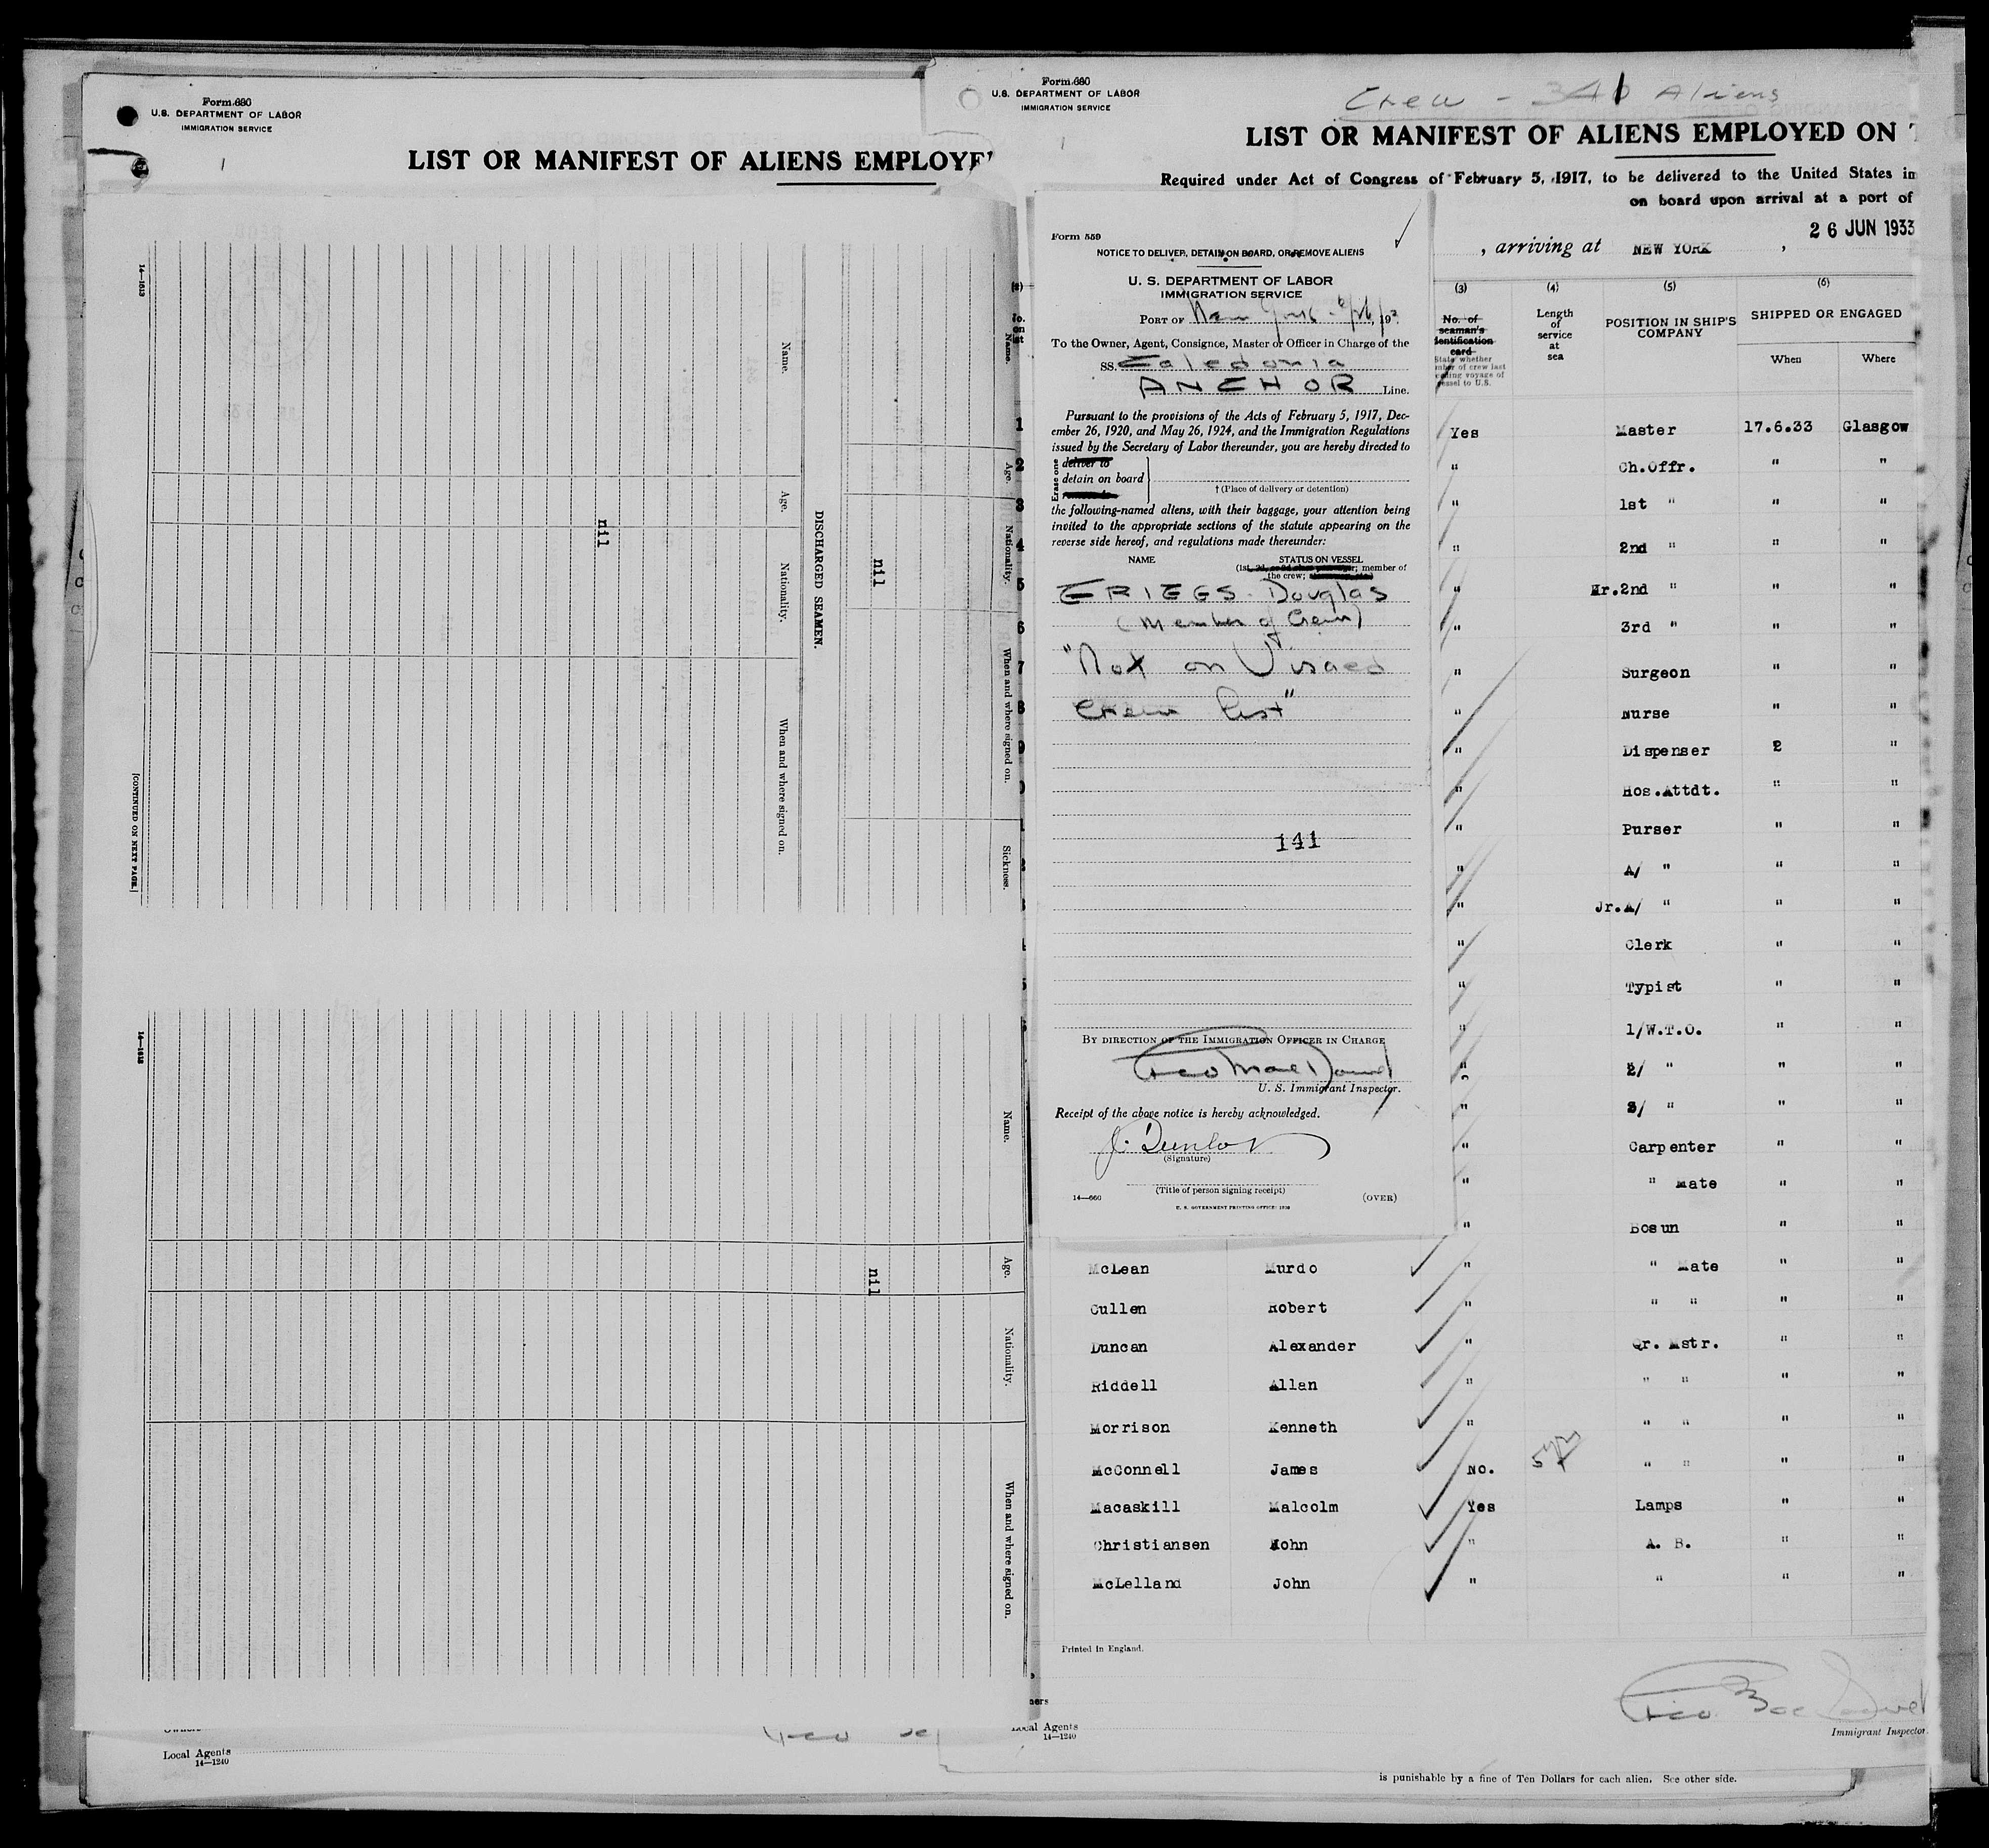 Form 680
U.S. DEPARTMENT OF LABOR
IMMIGRATION SERVICE
1
LIST OR MANIFEST OF ALIENS EMPLOYE
14—1813
Name.
Age.
Nationality.
When and where signed on.
DISCHARGED SEAMEN.
nil
nil
Name.
Age.
Nationality.
When and where signed on.
Sickness.
[CONTINUED ON NEXT PAGE.]
Name.
Age.
Nationality.
When and where signed on.
nil
Local Agents
14—1240
Form 680
U.S. DEPARTMENT OF LABOR
IMMIGRATION SERVICE
Crew - 341 Aliens
LIST OR MANIFEST OF ALIENS EMPLOYED ON
Required under Act of Congress of February 5, 1917, to be delivered to the United States
on board upon arrival at a port of
26 JUN 1933
, arriving at NEW YORK ,
Form 559
NOTICE TO DELIVER, DETAIN ON BOARD, OR REMOVE ALIENS
U. S. DEPARTMENT OF LABOR
IMMIGRATION SERVICE
PORT OF New York 6/26/, 193
To the Owner, Agent, Consignee, Master or Officer in Charge of the
SS. Caledonia
ANCHOR Line.
Pursuant to the provisions of the Acts of February 5, 1917, Dec-
ember 26, 1920, and May 26, 1924, and the Immigration Regulations
issued by the Secretary of Labor thereunder, you are hereby directed to
Erase one
deliver to
detain on board
† (Place of delivery or detention)
the following-named aliens, with their baggage, your attention being
invited to the appropriate sections of the statute appearing on the
reverse side hereof, and regulations made thereunder:
NAME STATUS ON VESSEL
member of
the crew;
Douglas
(Member of Crew)
"Not on Visaed
Crew List"
141
BY DIRECTION OF THE IMMIGRATION OFFICER IN CHARGE
U. S. Immigrant Inspector.
Receipt of the above notice is hereby acknowledged.
J. Dunlop
(Signature)
(Title of person signing receipt)
14—660 (OVER)
U. S. GOVERNMENT PRINTING OFFICE: 1930
(3) (4) (5) (6)
No. of
seaman's
identification
card
State whether
member of crew last
voyage of
vessel to U.S.
Length
of
service
at
sea
POSITION IN SHIP'S
COMPANY
SHIPPED OR ENGAGED
When Where
1 Yes Master 17.6.33 Glasgow
2 " Ch.Offr. " "
3 " 1st " " "
4 " 2nd " " "
5 " Jr.2nd " " "
6 " 3rd " " "
7 " Surgeon " "
8 " Nurse " "
9 " Dispenser 2 "
0 " Hos.Attdt. " "
" Purser " "
" A/ " " "
" Jr.A/ " " "
" Clerk " "
" Typist " "
" 1/W.T.O. " "
" 2/ " " "
" 3/ " " "
" Carpenter " "
" " Mate " "
" Bosun " "
McLean Murdo " " Mate " "
Cullen Robert " " " " "
Duncan Alexander " Qr. Mstr. " "
Riddell Allan " " " " "
Morrison Kenneth " " " " "
McConnell James No. 5 yrs " " " "
Macaskill Malcolm Yes Lamps " "
Christiansen John " A. B. " "
McLelland John " " " "
Printed in England.
Local Agents
14—1240
Immigrant Inspector.
is punishable by a fine of Ten Dollars for each alien. See other side.